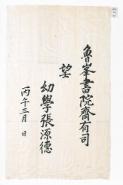 魯峯書院齋有司
望
幼學張源德
丙午三月 日